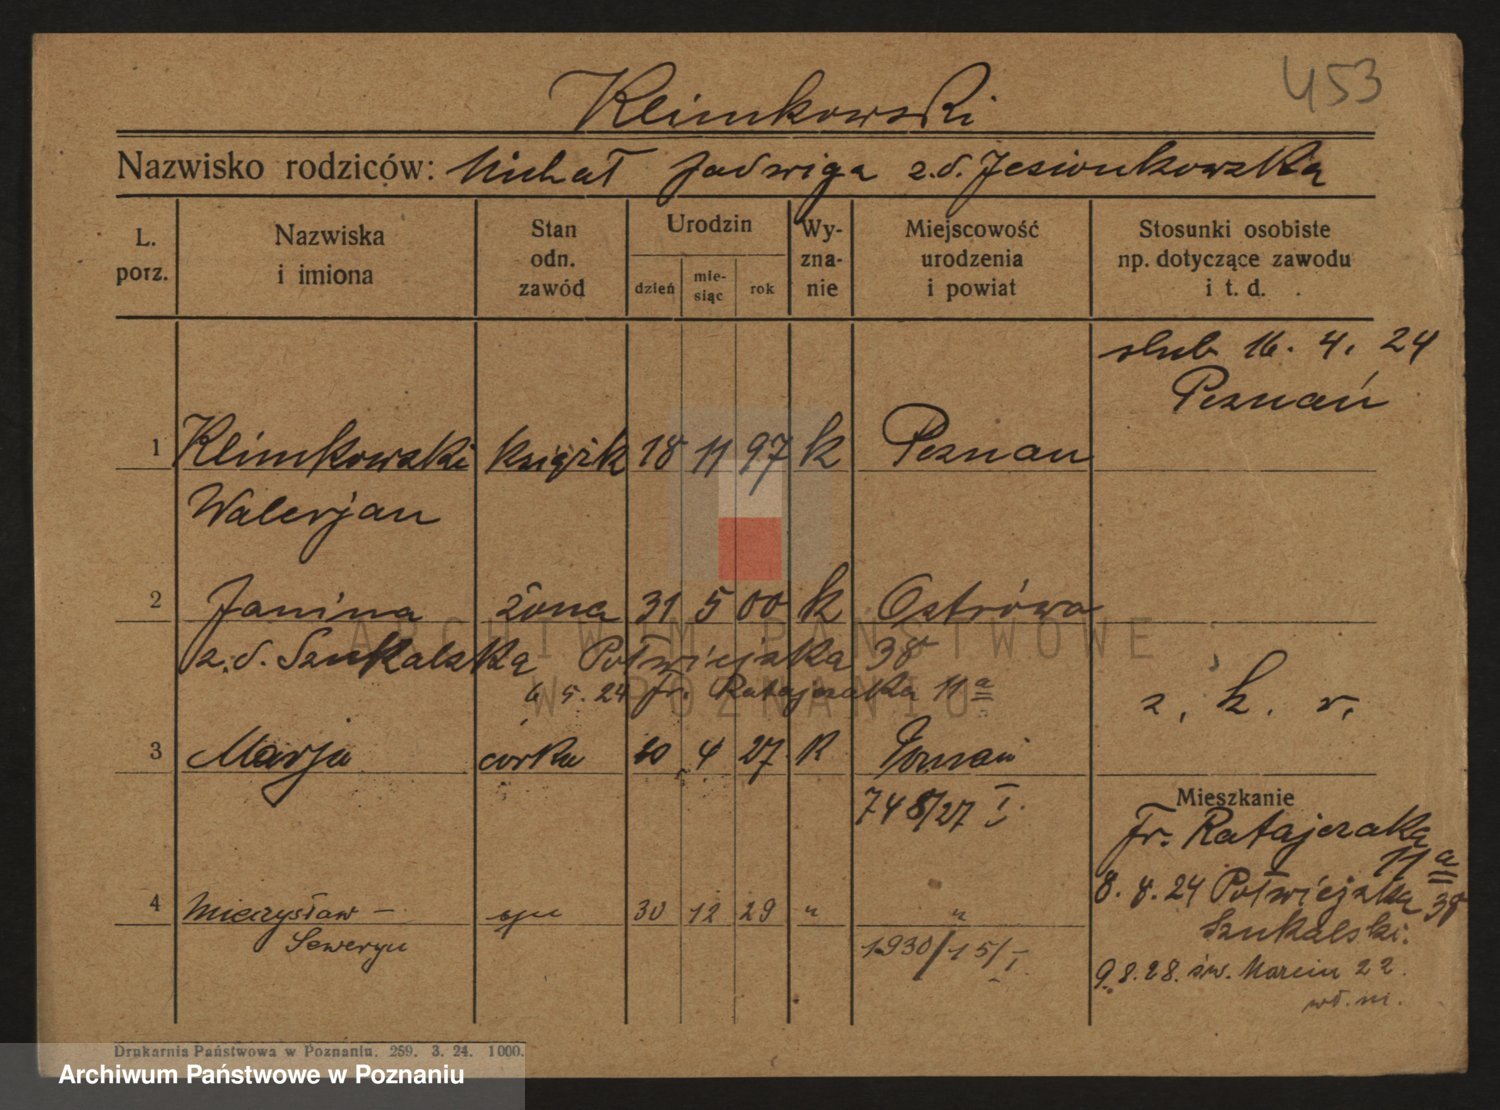 453
Klimkowski
Nazwisko rodziców: Michał Jadwiga z.d. Jesionkowska
L. porz.
Nazwiska i imiona
Stan odn. zawód
Urodzin
dzień
mie-siąc
rok
Wy-zna-nie
Miejscowość urodzenia i powiat
Stosunki osobiste np. dotyczące zawodu i t. d.
slub 16. 4. 24
Poznań
1 Klimkowski 18 11 97 k Poznan
Walerjan
2 Janina żona 31 5 00 k Ostrówo
z.d. Szukalska Półwiejska 38
6 5. 24 Fr. Ratajczaka 11a
z. k. r.
3 Marja córka 20 4 27 k Poznań
748/27 I.
Mieszkanie
Fr. Ratajczaka
11a
8. 8. 24 Półwiejska 38
Szukalski.
4 Mieczysław - syn 30 12 29 " "
Seweryn
1930/15/I
9. 8. 28. św. Marcin 22.
Drukarnia Państwowa w Poznaniu. 259. 3. 24. 1000.
ARCHIWUM PAŃSTWOWE
W POZNANIU
Archiwum Państwowe w Poznaniu